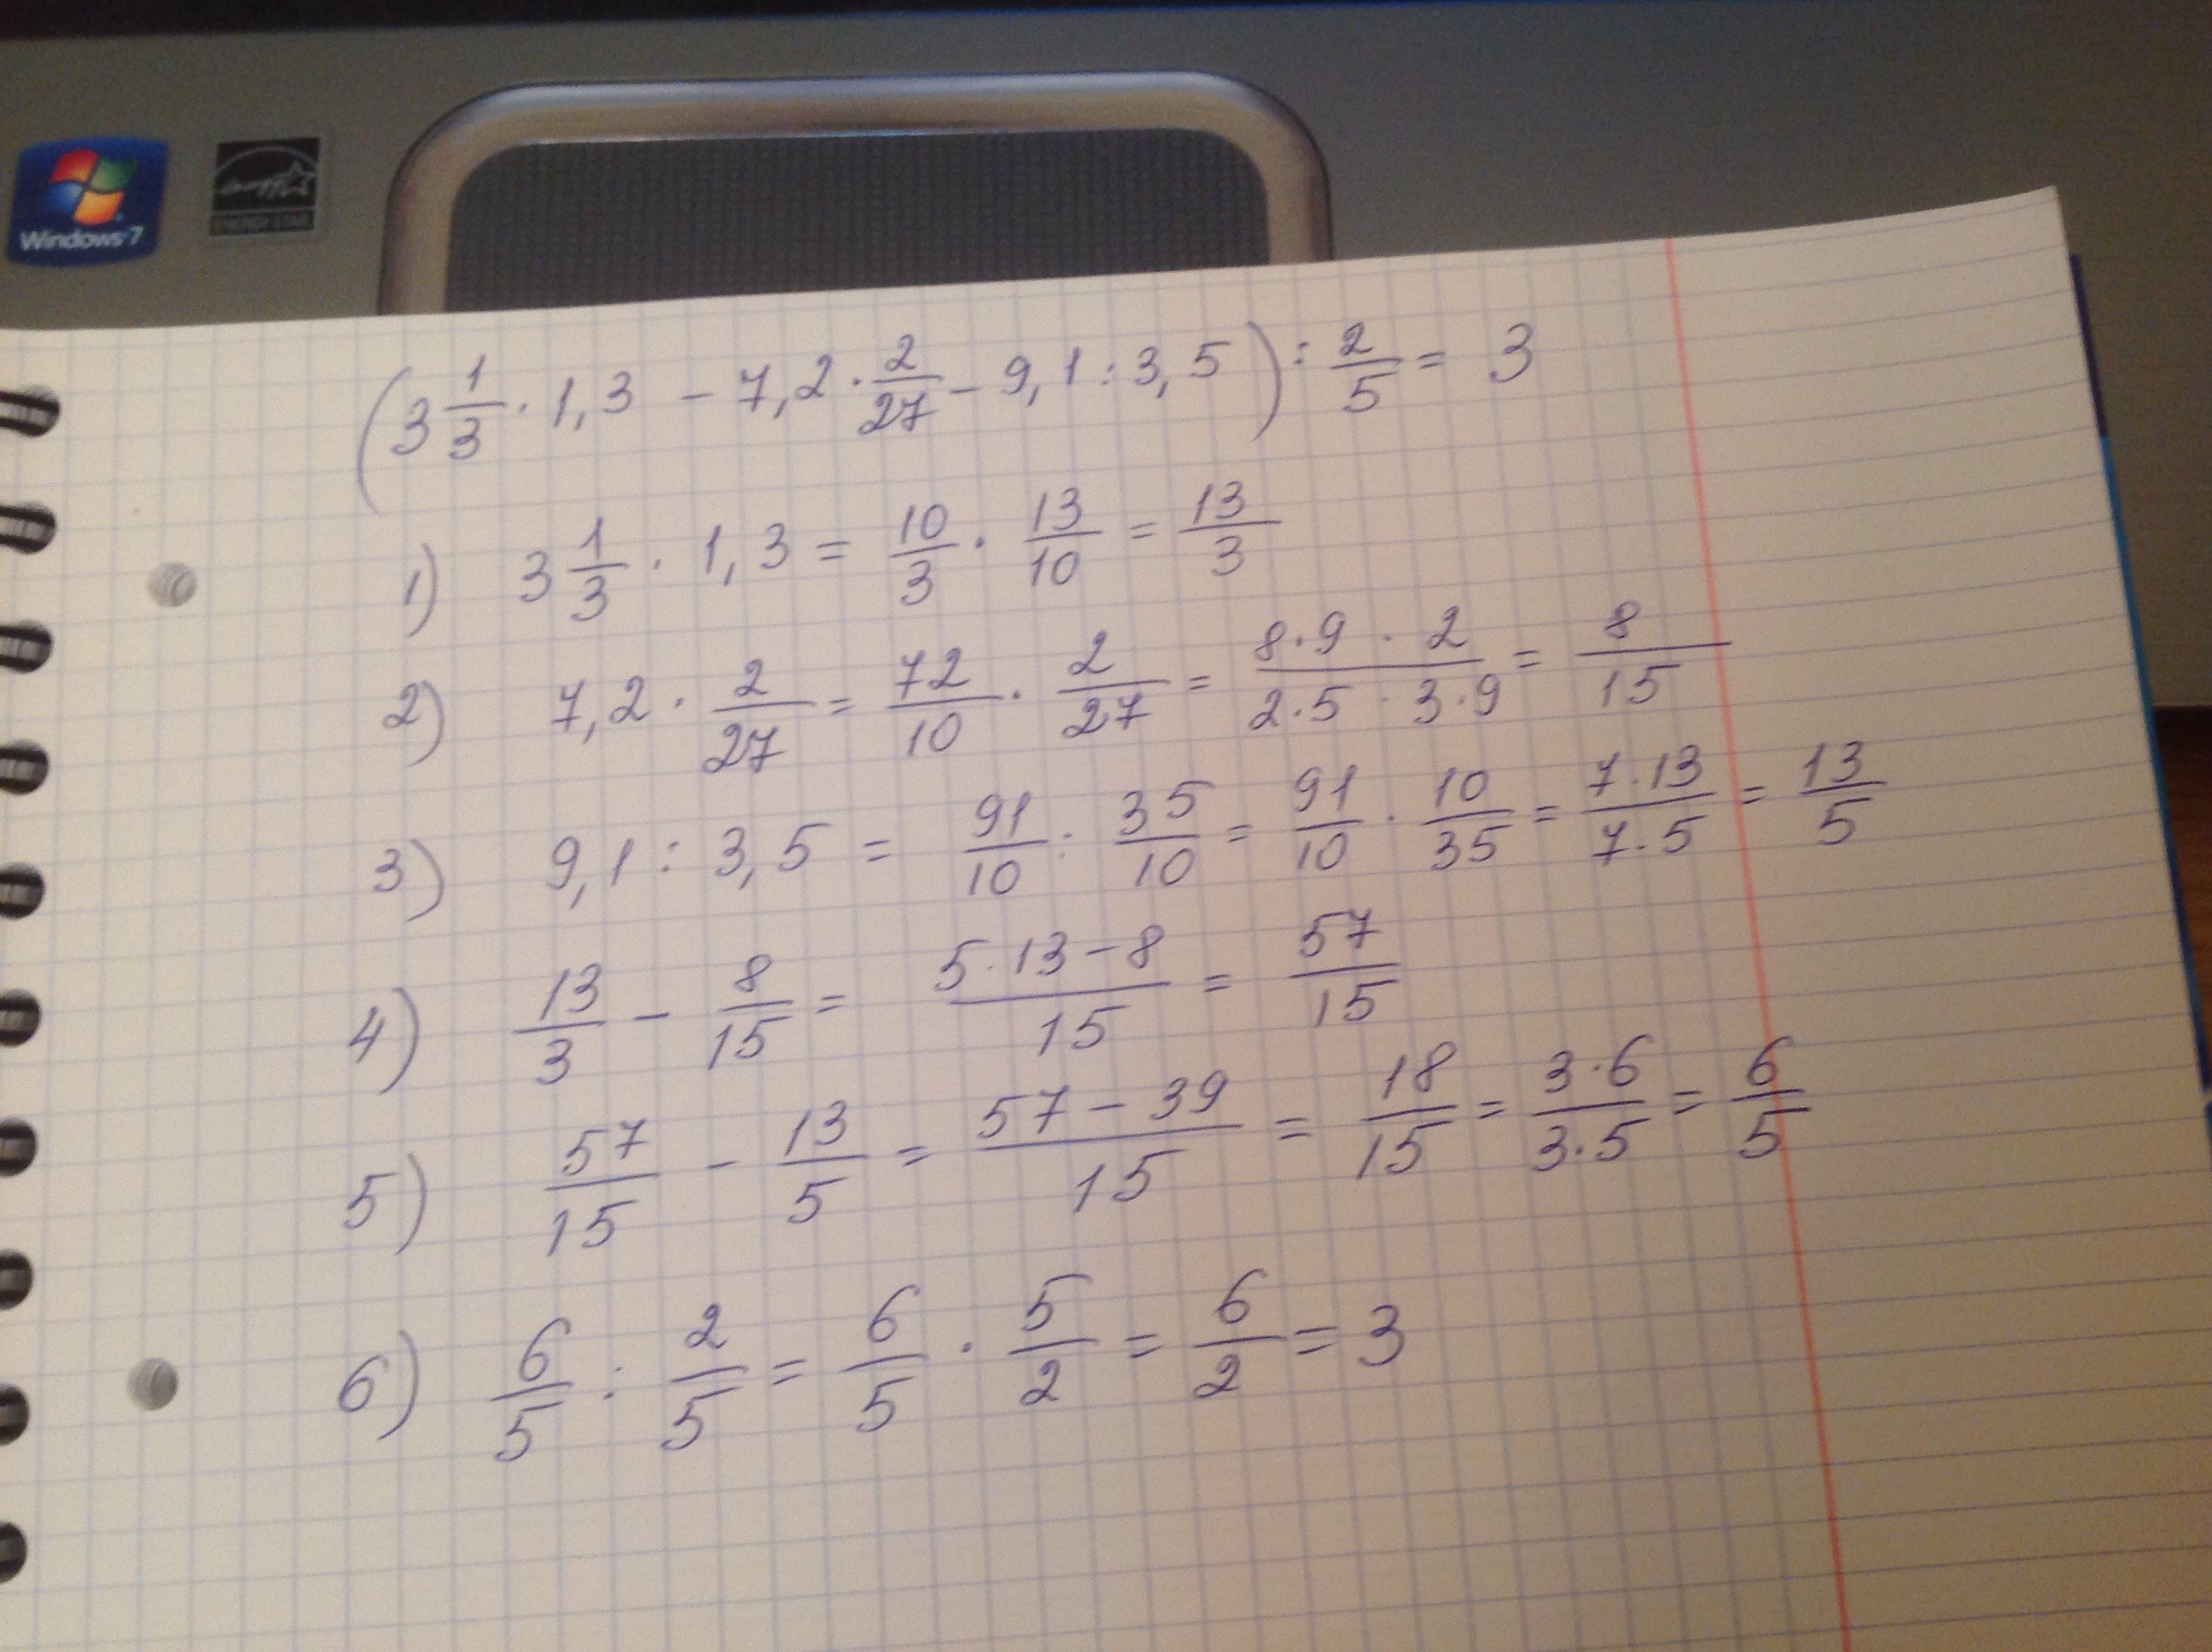 Windows 7
ENERGY STAR
(3 1/3 · 1,3 - 7,2 · 2/27 - 9,1 : 3,5) : 2/5 = 3
1) 3 1/3 · 1,3 = 10/3 · 13/10 = 13/3
2) 7,2 · 2/27 = 72/10 · 2/27 = 8·9 · 2/2·5 · 3·9 = 8/15
3) 9,1 : 3,5 = 91/10 : 35/10 = 91/10 · 10/35 = 7·13/7·5 = 13/5
4) 13/3 - 8/15 = 5·13-8/15 = 57/15
5) 57/15 - 13/5 = 57-39/15 = 18/15 = 3·6/3·5 = 6/5
6) 6/5 : 2/5 = 6/5 · 5/2 = 6/2 = 3